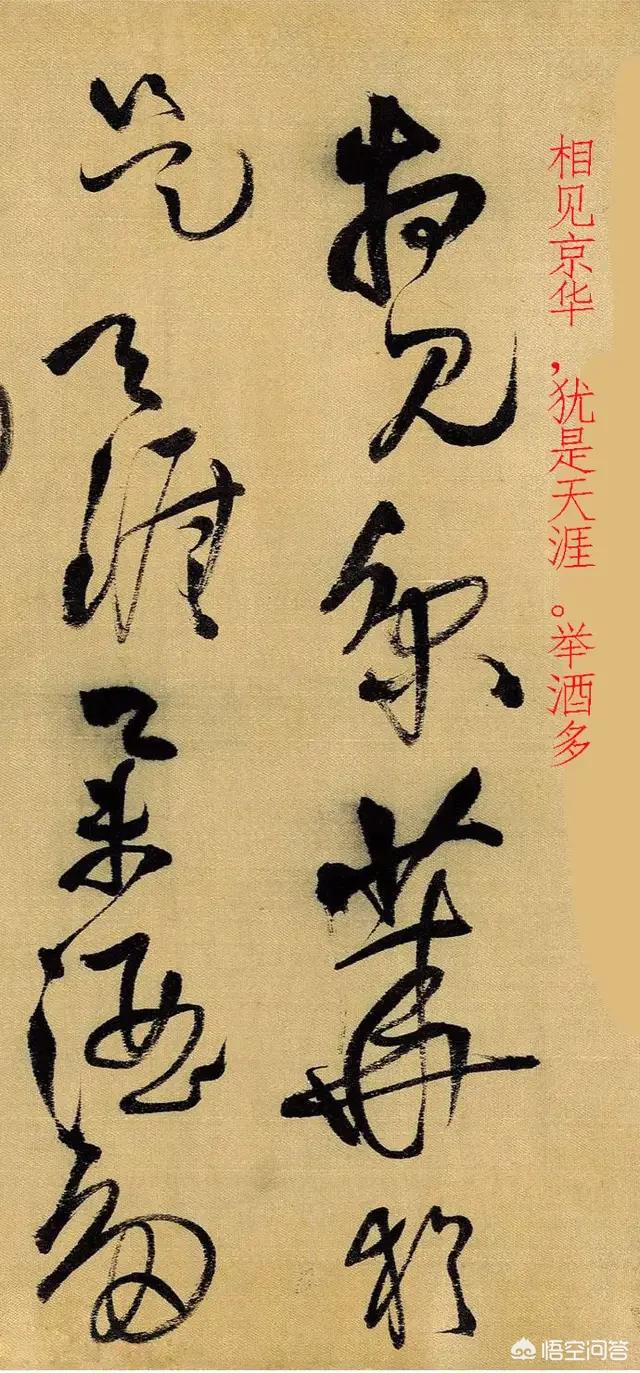 相见京华，犹是天涯。举酒多
相見京華猶
是天涯舉酒
悟空问答